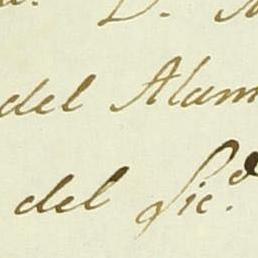 D.
del Alam
del Lic.do